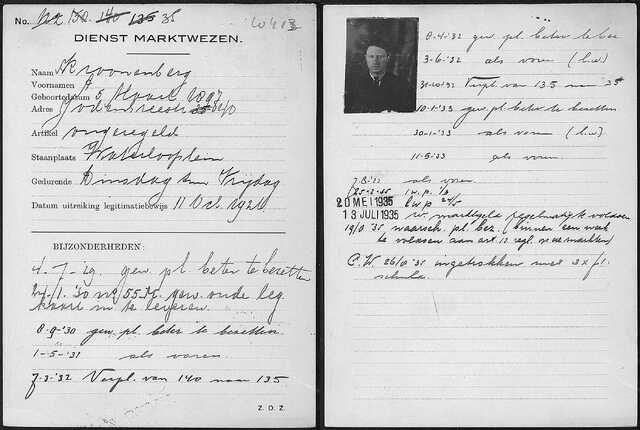 No. 142 150 140 135 35
DIENST MARKTWEZEN.
Naam Kroonenberg
Voornamen A
Geboortedatum 5 Maart 1897
Adres Jodenbreestr
Artikel ongeregeld
Staanplaats Waterlooplein
Gedurende Dinsdag t/m Vrijdag
Datum uitreiking legitimatiebewijs 11 Oct. 1926
BIJZONDERHEDEN:
4-7-'29. gew. pl. beter te bezetten
24/1.'30 no 55 M. gew. oude leg.
kaart in te leveren.
8-9-'30 gew. pl. beter te bezetten.
1-5-'31 als voren.
7-3-'32 Verpl. van 140 naar 135
Z. D. Z.
8-4-'32 gew. pl. beter te bez
3-6-'32 als voren (l.w.)
31-10-'32 Verpl. van 135 naar 35
10-1-'33 gew. pl. beter te bezetten
30-1-'33 als voren (l.w.)
11-5-'33 als voren.
als voren.
l.w.p.
20 MEI 1935 l.w.p
13 JULI 1935 marktgeld regelmatig voldoen
19/8 '35 waarsch. pl. bez. binnen een week
te voldoen aan art. 12 regl. v.e. markten
C.W. 26/8 '35 ingetrokken met 3 x f1.
schuld.